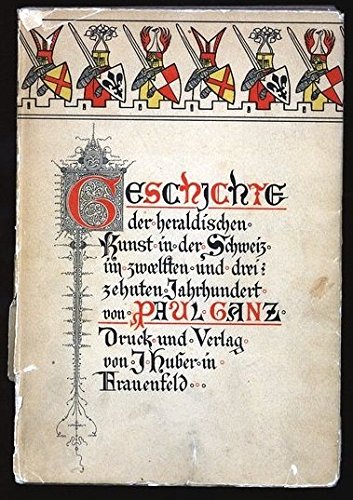 Geschichte
der heraldischen
Kunst in der Schweiz
im zwœlften und drei:
zehnten Jahrhundert
von PAUL GANZ
Druck und Verlag
von J. Huber in
Frauenfeld...